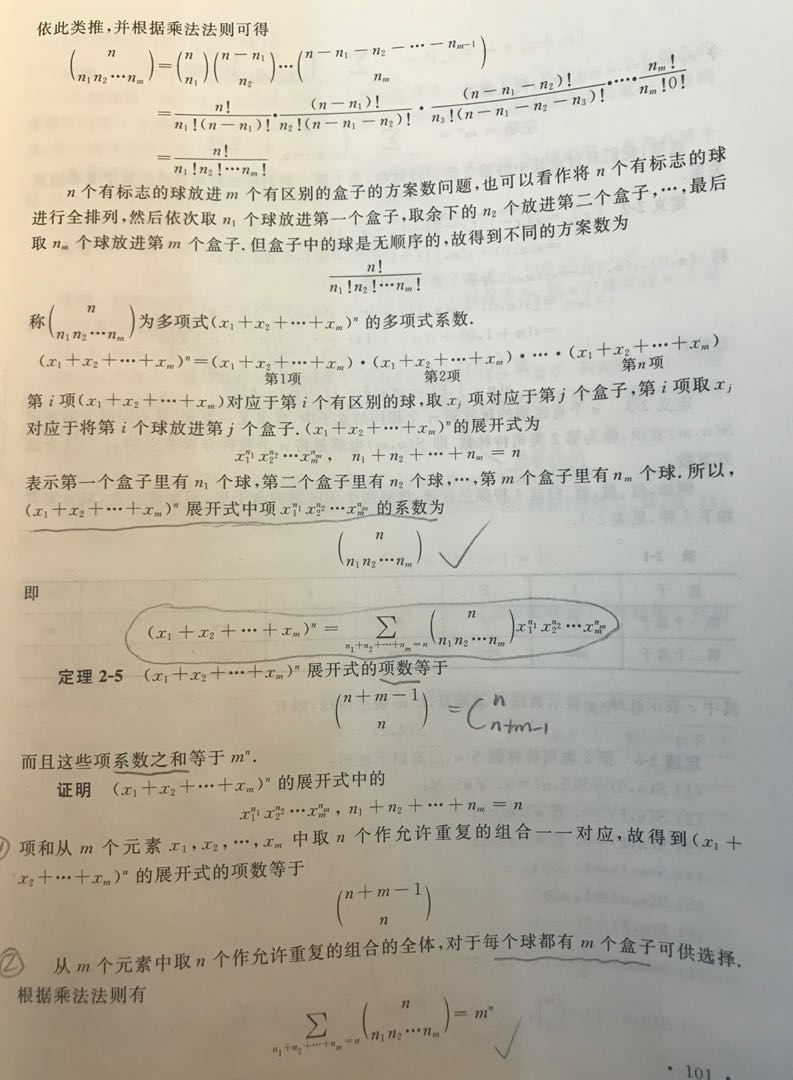 依此类推,并根据乘法法则可得
(n / n₁ n₂ ⋯ n_m) = (n / n₁)(n − n₁ / n₂)⋯(n − n₁ − n₂ − ⋯ − n_{m−1} / n_m)
= n! / n₁!(n − n₁)! · (n − n₁)! / n₂!(n − n₁ − n₂)! · (n − n₁ − n₂)! / n₃!(n − n₁ − n₂ − n₃)! · ⋯ · n_m! / n_m!0!
= n! / n₁!n₂!⋯n_m!
n 个有标志的球放进 m 个有区别的盒子的方案数问题,也可以看作将 n 个有标志的球
进行全排列,然后依次取 n₁ 个球放进第一个盒子,取余下的 n₂ 个放进第二个盒子,⋯,最后
取 n_m 个球放进第 m 个盒子.但盒子中的球是无顺序的,故得到不同的方案数为
n! / n₁!n₂!⋯n_m!
称(n / n₁ n₂ ⋯ n_m)为多项式(x₁ + x₂ + ⋯ + x_m)ⁿ 的多项式系数.
(x₁ + x₂ + ⋯ + x_m)ⁿ = (x₁ + x₂ + ⋯ + x_m) · (x₁ + x₂ + ⋯ + x_m) · ⋯ · (x₁ + x₂ + ⋯ + x_m)
第1项 第2项 第n项
第 i 项(x₁ + x₂ + ⋯ + x_m)对应于第 i 个有区别的球,取 x_j 项对应于第 j 个盒子,第 i 项取 x_j
对应于将第 i 个球放进第 j 个盒子.(x₁ + x₂ + ⋯ + x_m)ⁿ的展开式为
x₁^{n₁} x₂^{n₂} ⋯ x_m^{n_m}, n₁ + n₂ + ⋯ + n_m = n
表示第一个盒子里有 n₁ 个球,第二个盒子里有 n₂ 个球,⋯,第 m 个盒子里有 n_m 个球.所以,
(x₁ + x₂ + ⋯ + x_m)ⁿ 展开式中项 x₁^{n₁} x₂^{n₂} ⋯ x_m^{n_m} 的系数为
(n / n₁ n₂ ⋯ n_m) ✓
即
(x₁ + x₂ + ⋯ + x_m)ⁿ = ∑_{n₁+n₂+⋯+n_m=n} (n / n₁ n₂ ⋯ n_m) x₁^{n₁} x₂^{n₂} ⋯ x_m^{n_m}
定理 2-5 (x₁ + x₂ + ⋯ + x_m)ⁿ 展开式的项数等于
(n + m − 1 / n) = C_{n+m−1}^{n}
而且这些项系数之和等于 mⁿ.
证明 (x₁ + x₂ + ⋯ + x_m)ⁿ 的展开式中的
x₁^{n₁} x₂^{n₂} ⋯ x_m^{n_m}, n₁ + n₂ + ⋯ + n_m = n
① 项和从 m 个元素 x₁,x₂,⋯,x_m 中取 n 个作允许重复的组合一一对应,故得到(x₁ +
x₂ + ⋯ + x_m)ⁿ 的展开式的项数等于
(n + m − 1 / n)
② 从 m 个元素中取 n 个作允许重复的组合的全体,对于每个球都有 m 个盒子可供选择.
根据乘法法则有
∑_{n₁+n₂+⋯+n_m=n} (n / n₁ n₂ ⋯ n_m) = mⁿ ✓
· 101 ·